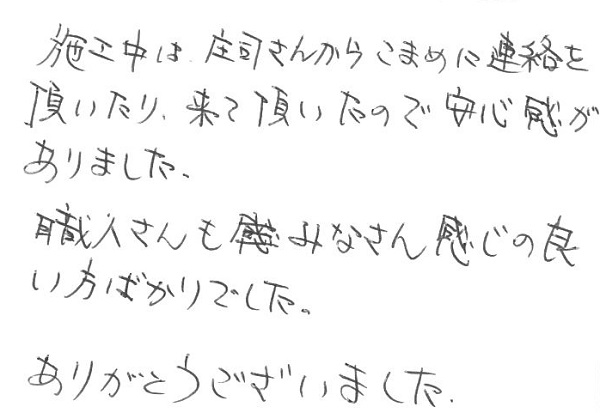 施工中は、庄司さんからこまめに連絡を
頂いたり、来て頂いたので安心感が
ありました。
職人さんも みなさん感じの良
い方ばかりでした。
ありがとうございました。